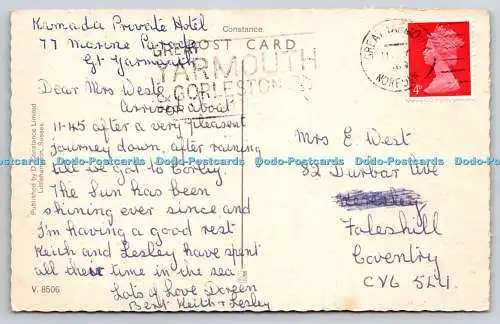 Kamada Private Hotel
77 Marine Parade
Gt Yarmouth
Constance
POST CARD
GREAT
YARMOUTH
& GORLESTON
GREAT YARMOUTH
NORFOLK
4D
Dear Mrs West
Arrived about
11-45 after a very pleasant
journey down, after raining
till we got to Corley.
The sun has been
shining ever since and
I'm having a good rest
Keith and Lesley have spent
all their time in the sea.
Lots of Love Doreen
Bert Keith & Lesley
Mrs E West
82 Durbar Ave
Foleshill
Coventry
CV6 5LU.
Published by D. Constance Limited
Littlehampton, Sussex.
V. 8506
Dodo-Postcards Dodo-Postcards Dodo-Postcards Dodo-Postcards Dodo-Postcards Dodo-Postcards